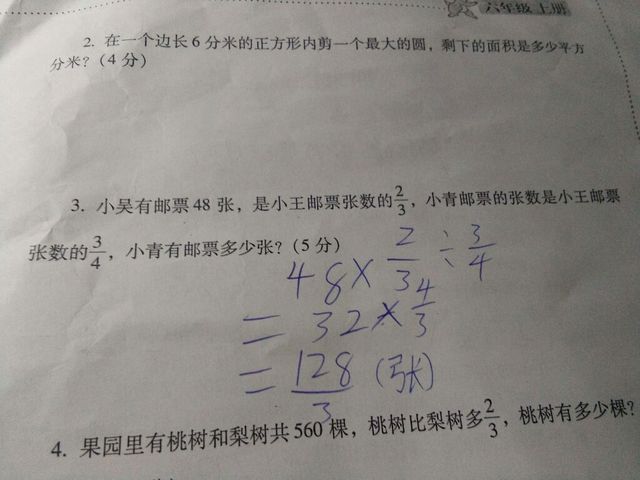 六年级上册
2. 在一个边长6分米的正方形内剪一个最大的圆，剩下的面积是多少平方
分米？（4分）
3. 小吴有邮票48张，是小王邮票张数的2/3，小青邮票的张数是小王邮票
张数的3/4，小青有邮票多少张？（5分）
48×2/3÷3/4
=32×4/3
=128/3（张）
4. 果园里有桃树和梨树共560棵，桃树比梨树多2/3，桃树有多少棵？